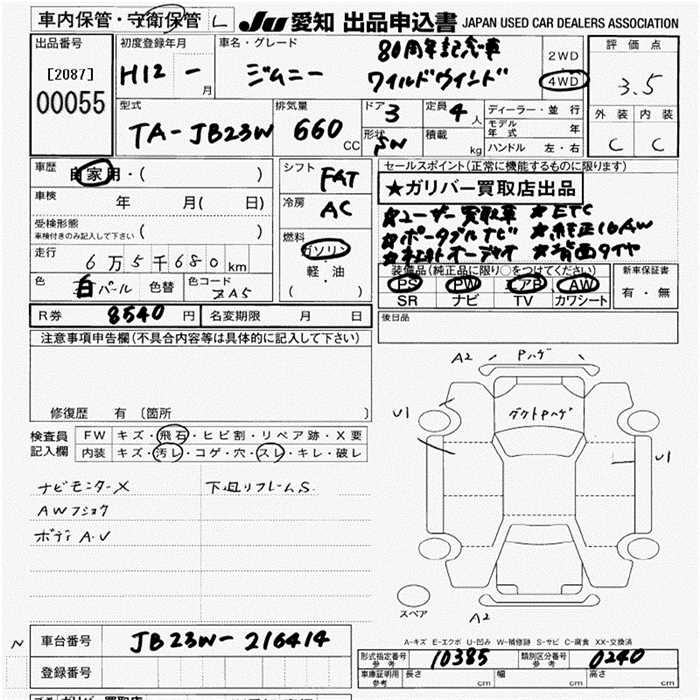 車内保管・守衛保管 L JU 愛知 出品申込書 JAPAN USED CAR DEALERS ASSOCIATION
出品番号
[2087]
00055
初度登録年月
H12 - 月
車名・グレード
80周年記念車
ジムニー ワイルドウインド
2WD
4WD
評価点
3.5
外装 内装
C C
型式
TA-JB23W
排気量
660 CC
ドア 3
定員 4 人
形状 SW
積載 kg
ディーラー・並行
モデル年式 年
ハンドル 左・右
車歴
自家用・( )
車検
年 月( 日)
受検形態
車検付きのみ記入して下さい ( )
走行
6万5千680km
色
白パール 色替 色コード ZA5
シフト
FAT
冷房
AC
燃料
ガソリン
軽・油
( )
セールスポイント(正常に機能するものに限ります)
★ガリバー買取店出品
★ユーザー買取車 ★ETC
★ポータブルナビ ★純正16AW
★社外オーディオ ★背面タイヤ
装備品(純正品に限り○をつけてください)
PS PW エアB AW
SR ナビ TV カワシート
新車保証書
有・無
R券 8540 円 名変期限 月 日
後日品
注意事項申告欄(不具合内容等は具体的に記入して下さい)
修復歴 有 〔箇所 〕
検査員
記入欄
FW キズ・飛石・ヒビ割・リペア跡・X要
内装 キズ・汚レ・コゲ・穴・スレ・キレ・破レ
ナビモニターX 下廻リフレームS.
AWフショク
ボディA.U
A2 Pハゲ
U1 ダクトPハゲ
U1
スペア
A2
A-キズ E-エクボ U-凹み W-補修跡 S-サビ C-腐食 XX-交換済
N 車台番号 JB23W-216414
登録番号
型式指定番号 参考 10385 類別区分番号 参考 0240
車庫証明用 参考 長さ cm 幅 cm 高さ cm